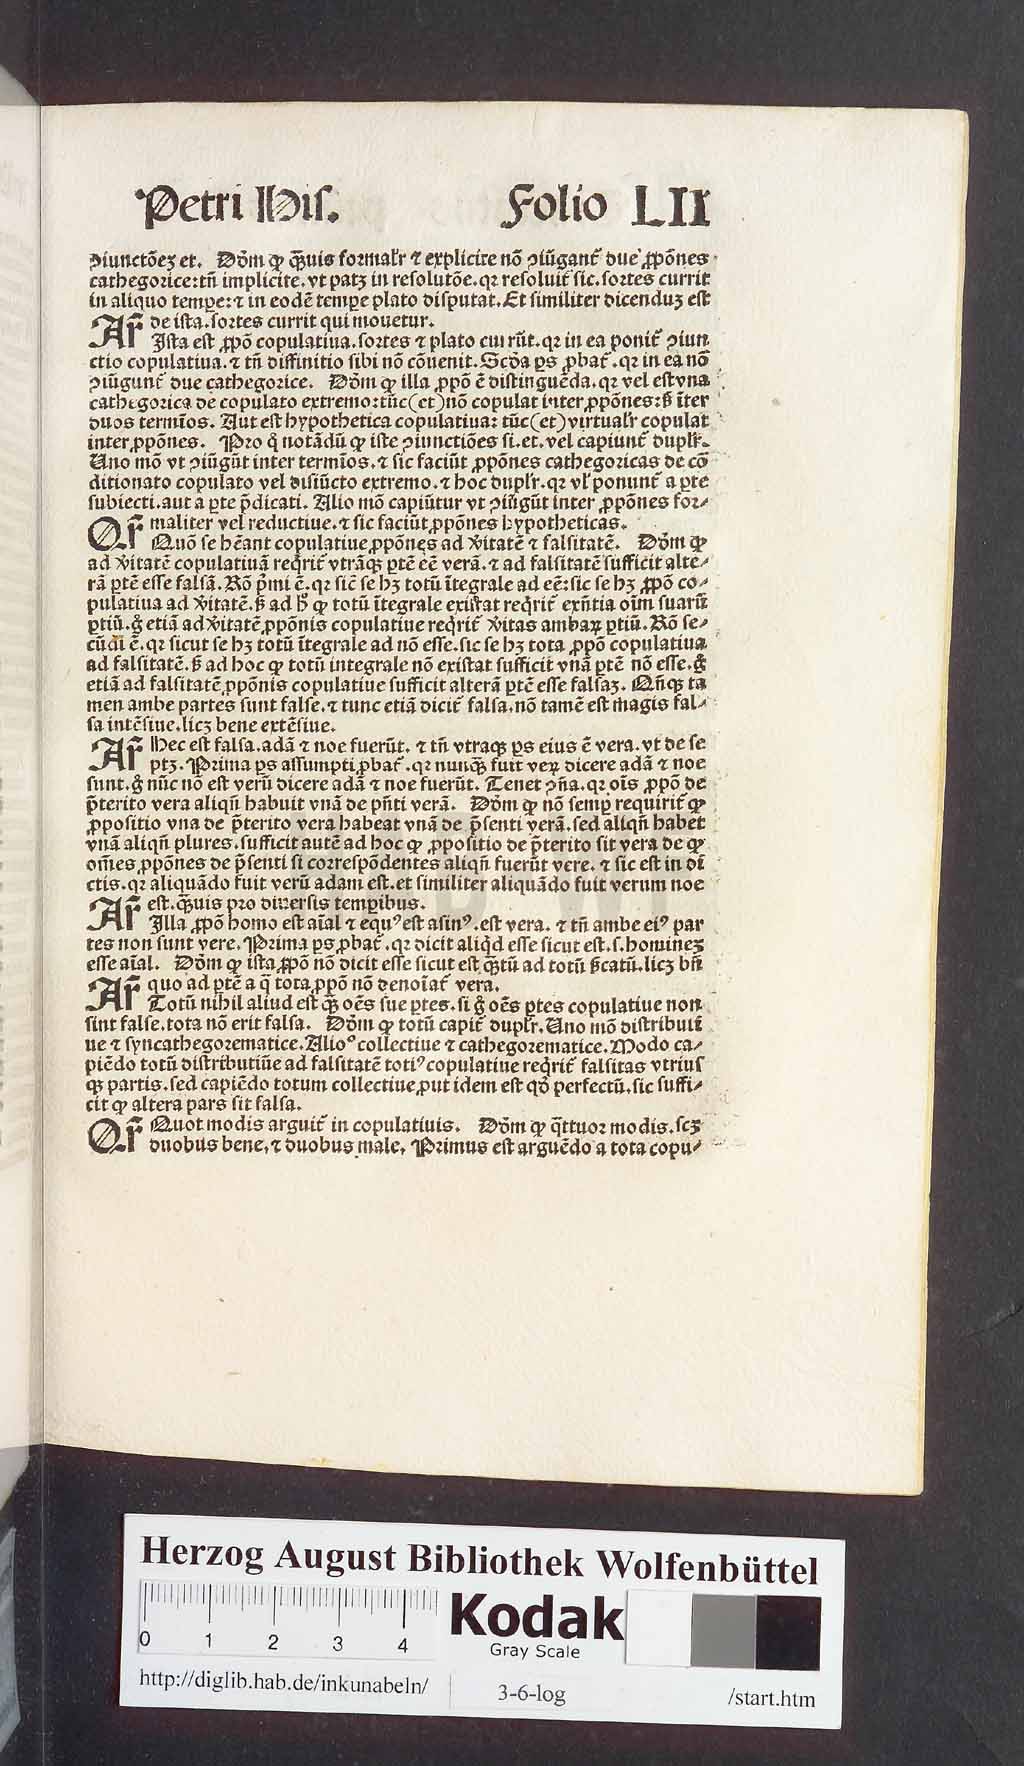 Petri His. Folio LII
ꝯiunctõeꝫ et. Dõm ꝙ q̃uis formalr̃ ⁊ explicite nõ ꝯiũgant̃ due ꝓpõnes
cathegorice: tñ implicite. vt patꝫ in resolutõe. qꝛ resoluit̃ sic. sortes currit
in aliquo tempe: ⁊ in eodẽ tempe plato disputat. Et similiter dicenduꝫ est
Ar̃ de ista. sortes currit qui mouetur.
Ista est ꝓpõ copulatiua. sortes ⁊ plato currũt. qꝛ in ea ponit̃ ꝯiun
ctio copulatiua. ⁊ tñ diffinitio sibi nõ cõuenit. Scd̃a ꝑs ꝓbat̃. qꝛ in ea nõ
ꝯiũgunt̃ due cathegorice. Dõm ꝙ illa ꝓpõ ẽ distinguẽda. qꝛ vel est vna
cathegorica de copulato extremo: tũc (et) nõ copulat inter ꝓpõnes: ß ĩter
duos termĩos. Aut est hypothetica copulatiua: tũc (et) virtualr̃ copulat
inter ꝓpõnes. Pro q̃ notãdũ ꝙ iste ꝯiunctiões si. et. vel capiunt̃ duplr̃.
Uno mõ vt ꝯiũgũt inter termĩos. ⁊ sic faciũt ꝓpõnes cathegoricas de cõ
ditionato copulato vel disiũcto extremo. ⁊ hoc duplr̃. qꝛ vl̃ ponunt̃ a ꝑte
subiecti. aut a ꝑte p̃dicati. Alio mõ capiũtur vt ꝯiũgũt inter ꝓpõnes for⸗
Qr̃ maliter vel reductiue. ⁊ sic faciũt ꝓpõnes hypotheticas.
Quõ se hẽant copulatiue ꝓpõnes ad ṽitatẽ ⁊ falsitatẽ. Dõm ꝙ
ad ṽitatẽ copulatiuã reqr̃it̃ vtrãqꝫ ꝑtẽ eẽ verã. ⁊ ad falsitatẽ sufficit alte⸗
rã ꝑtẽ esse falsã. Rõ p̃mi ẽ. qꝛ sic̃ se hꝫ totũ ĩtegrale ad eẽ: sic se hꝫ ꝓpõ co⸗
pulatiua ad ṽitatẽ. ß ad h̃ ꝙ totũ ĩtegrale existat reqr̃it̃ exñtia oĩm suarũ
ꝑtiũ. g̃ etiã ad ṽitatẽ ꝓpõnis copulatiue reqr̃it̃ ṽitas ambaꝝ ꝑtiũ. Rõ se⸗
cũdi ẽ. qꝛ sicut se hꝫ totũ ĩtegrale ad nõ esse. sic se hꝫ tota ꝓpõ copulatiua
ad falsitatẽ. ß ad hoc ꝙ totũ integrale nõ existat sufficit vnã ꝑtẽ nõ esse. g̃
etiã ad falsitatẽ ꝓpõnis copulatiue sufficit alterã ꝑtẽ esse falsaꝫ. Qñqꝫ ta
men ambe partes sunt false. ⁊ tunc etiã dicit̃ falsa. nõ tamẽ est magis fal⸗
sa intẽsiue. licꝫ bene extẽsiue.
Ar̃ Hec est falsa. adã ⁊ noe fuerũt. ⁊ tñ vtraqꝫ ꝑs eius ẽ vera. vt de se
ptꝫ. Prima ꝑs assumpti ꝓbat̃. qꝛ nunqꝫ̃ fuit veꝝ dicere adã ⁊ noe
sunt. g̃ nũc nõ est verũ dicere adã ⁊ noe fuerũt. Tenet ꝯña. qꝛ oĩs ꝓpõ de
p̃terito vera aliqñ habuit vnã de pñti verã. Dõm ꝙ nõ semꝑ requirit̃ ꝙ
ꝓpositio vna de p̃terito vera habeat vnã de p̃senti verã. sed aliqñ habet
vnã aliqñ plures. sufficit autẽ ad hoc ꝙ ꝓpositio de p̃terito sit vera de ꝙ
om̃es ꝓpõnes de p̃senti si correspõdentes aliqñ fuerũt vere. ⁊ sic est in di
ctis. qꝛ aliquãdo fuit verũ adam est. et similiter aliquãdo fuit verum noe
Ar̃ est. q̃uis pro diuersis tempibus.
Illa ꝓpõ homo est aĩal ⁊ equꝰ est asinꝰ. est vera. ⁊ tñ ambe eiꝰ par
tes non sunt vere. Prima ꝑs ꝓbat̃. qꝛ dicit aliqd̃ esse sicut est. s. homineꝫ
esse aĩal. Dõm ꝙ ista ꝓpõ nõ dicit esse sicut est q̃tũ ad totũ ß̃catũ. licꝫ bñ
Ar̃ quo ad ꝑtẽ a q̃ tota ꝓpõ nõ denoĩat̃ vera.
Totũ nihil aliud est qꝫ̃ oẽs sue ꝑtes. si g̃ oẽs ꝑtes copulatiue non
sint false. tota nõ erit falsa. Dõm ꝙ totũ capit̃ duplr̃. Uno mõ distributi
ue ⁊ syncathegorematice. Alioꝰ collectiue ⁊ cathegorematice. Modo ca⸗
piẽdo totũ distributiũe ad falsitatẽ totiꝰ copulatiue reqr̃it̃ falsitas vtrius
qꝫ partis. sed capiẽdo totum collectiue ꝓut idem est qd̃ perfectũ. sic suffi⸗
cit ꝙ altera pars sit falsa.
Qr̃ Quot modis arguit̃ in copulatiuis. Dõm ꝙ q̃ttuor modis. scꝫ
duobus bene, ⁊ duobus male. Primus est arguẽdo a tota copu⸗
Herzog August Bibliothek Wolfenbüttel
0 1 2 3 4
Kodak
Gray Scale
http://diglib.hab.de/inkunabeln/ 3-6-log /start.htm